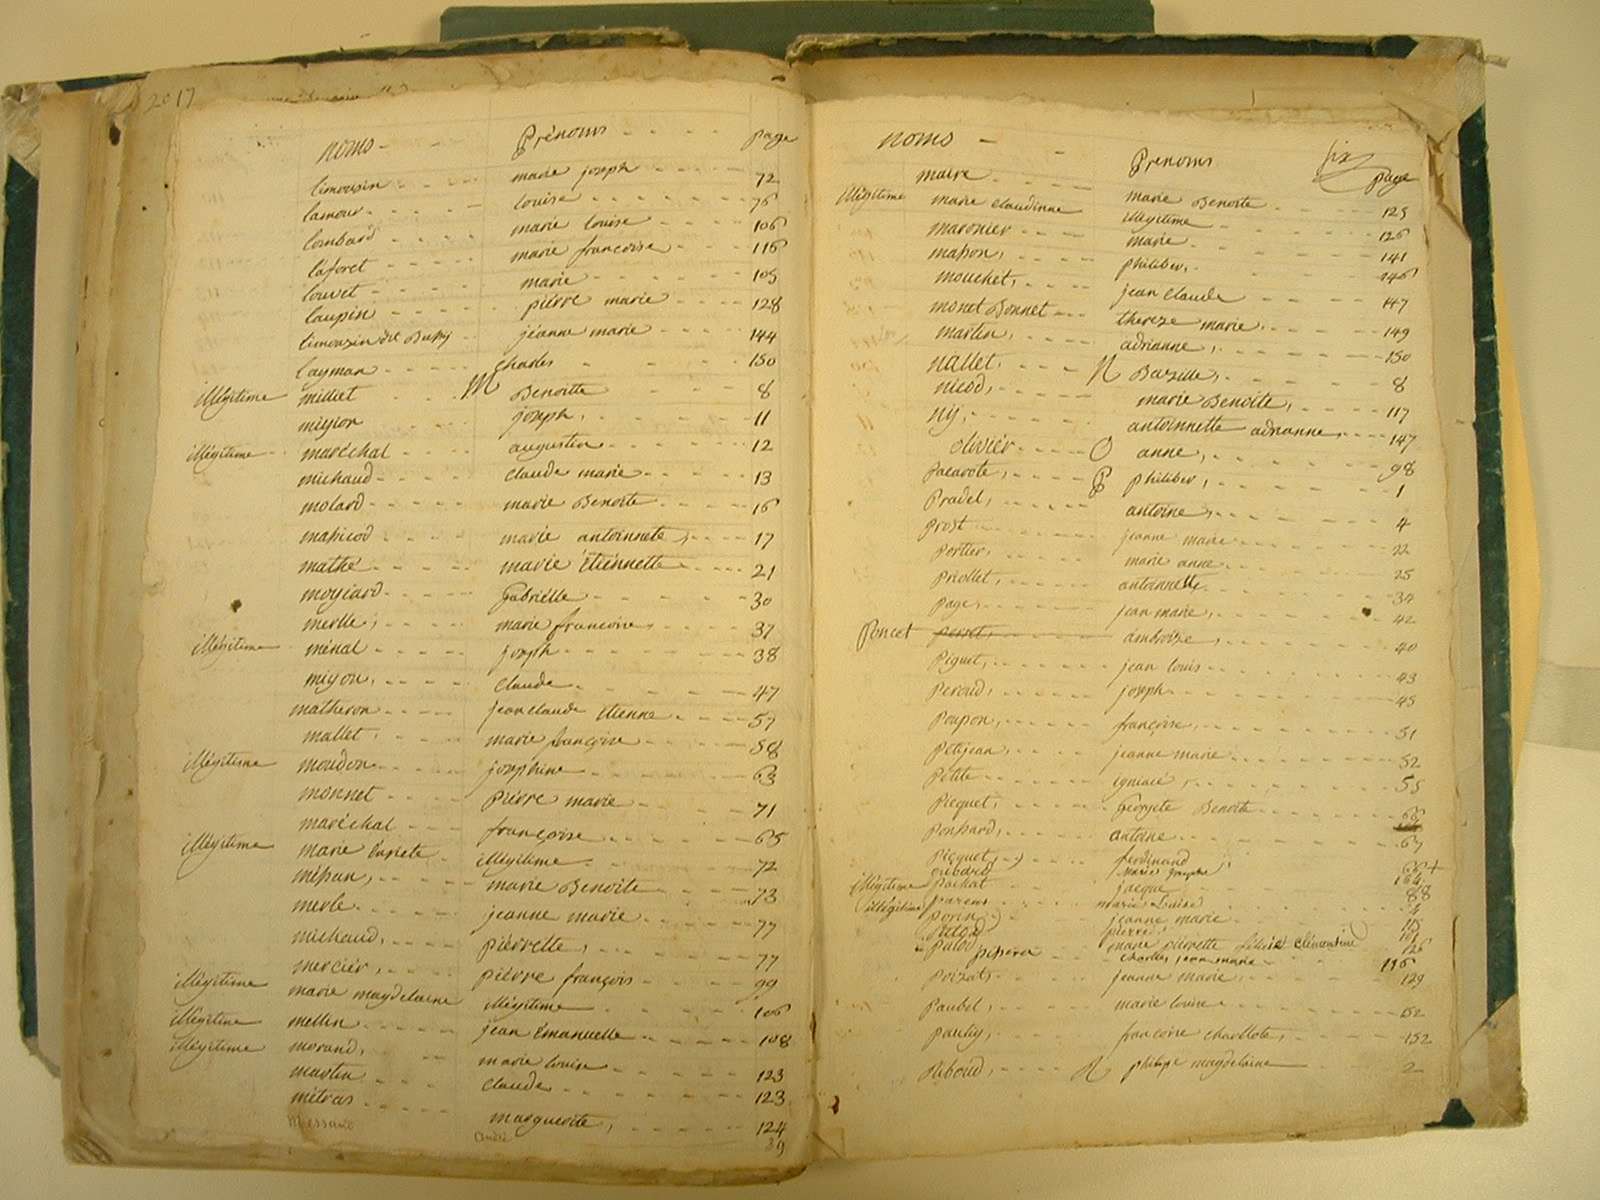 2017
noms Prénoms page
limousin marie joseph 72
lamour louise 76
lombard marie louise 106
laforet marie francoise 116
louvet marie 105
laupin pierre marie 128
limousin dit jéanne marie 144
layman charles 150
illégitime milliet M Benoitte 8
migion joseph 11
illégitime maréchal augustin 12
michaud claude marie 13
molard marie Benoite 16
massicod marie antoinnete 17
mathé marie Etiénnette 21
moyiard gabriélle 30
merlle marie francoise 37
illégitime ménal joseph 38
migon claude 47
matheron jean claude Etienne 57
mallet marie françoise 58
illégitime moudon josephine 63
monnet piérre marie 71
maréchal françoise 65
illégitime marie illégitime 72
méssan marie Benoite 73
merle jeanne marie 77
michaud piérrette 77
merciér piérre françois 99
illégitime marie magdelaine illégitime 106
illégitime mellin jean Emanuelle 108
illégitime morand marie louise 123
martin claude 123
métras marguerite 124
andré 39
noms Prenoms six page
maire marie Benoite 125
illégitime marie claudinne illégitime 126
maronier marie 141
masson philiber 146
mouchet jean claude 147
monet Bonnet thereze marie 149
martin adrianne 150
nallet N Bazille 8
nicod marie Benoite 117
nij antoinnette adrianne 147
oliviér O anne 98
pacarote P philiber 1
pradel antoine 4
prost jeanne marie 22
portier marie anne 25
priollet antoinnette 34
page jean marie 42
poncet perret ambroise 40
piquet jean louis 43
peroud joseph 45
poupon françoise 51
pétijean jeanne marie 52
pétite igniacé 55
picquet Georgete Benoite 66
ponsard antoine 67
picquet ferdinand 66
illégitime pachat jacque 68
illégitime parens marie Luise
porin jeanne marie 115
palod pierre 101
palod marie pierrette félicié clémentine 126
charles jean marie 116
poizat jeanne marie 129
paubel marie louise 152
pauliy francoise charllote 152
Riboud R philipe magdelaine 2